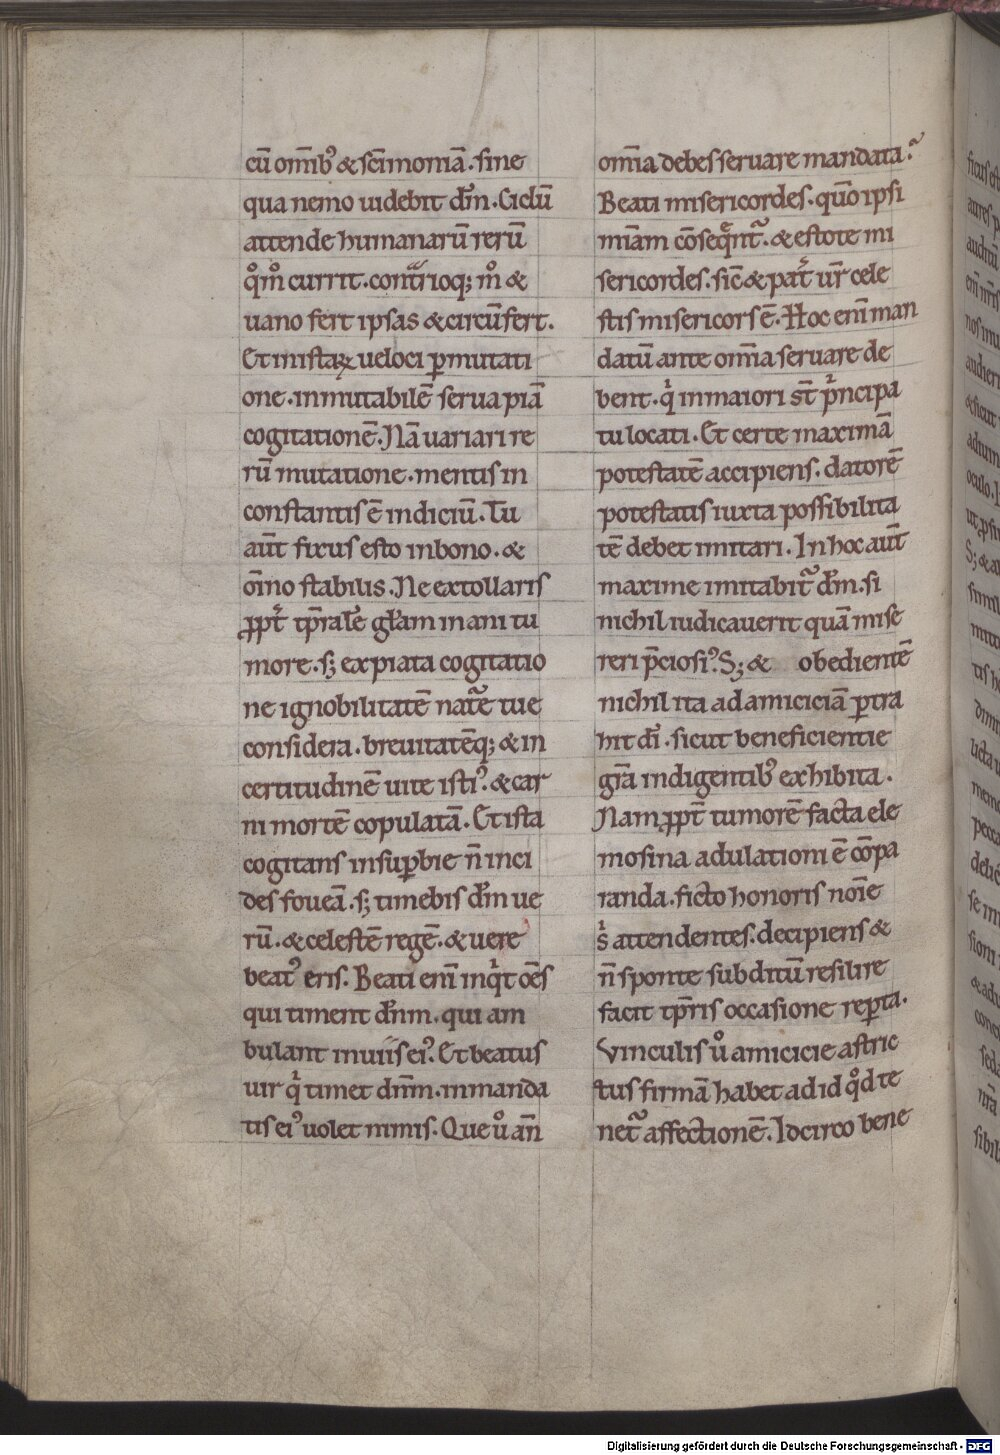 cū om̄ib᷒ & sc̄imoniā. sine
qua nemo uidebit dn̄m. Ciclū
attende humanarū rerū
qͦm̊ currit. contͣrioq; m̊ &
uano fert ipsas & circūfert.
Et in istaꝝ ueloci ꝑmutati
one. inmutabilē serua piā
cogitationē. Nā uariari re
rū mutatione. mentis in
constantis ē indiciū. Tu
aūt fixus esto in bono. &
om̄no stabilis. Ne extollaris
ꝓpt̄ tp̄ralē gl̄am inani tu
more. s; expiata cogitatio
ne ignobilitatē natͣe tue
considera. breuitatēq; & in
certitudinē uite isti᷒. & car
ni mortē copulatā. Et ista
cogitans in suꝑbie n̄ inci
des foueā. s; timebis dn̄m ue
rū. & celestē regē. & uere
beat᷒ eris. Beati eni̅ inqͥt oēs
qui timent dn̄m. qui am
bulant in uiis ei᷒. Et beatus
uir qͥ timet dn̄m. in manda
tis ei᷒ uolet nimis. Que ů an̄
om̄ia debes seruare mandata?
Beati misericordes. quō ipsi
miam cōseqͣntͬ. & estote mi
sericordes. sic̄ & pat̄ ur̄ cele
stis misericors ē. Hoc eni̅ man
datū ante om̄ia seruare de
bent. qͥ in maiori st̄ pͥncipa
tu locati. Et certe maximā
potestatē accipiens. datorē
potestatis iuxta possibilita
tē debet imitari. In hoc aūt
maxime imitabitͬ dn̄m. si
nichil iudicauerit quā mise
reri p̄ciosi᷒. S; & obedientē
nichil ita ad amiciciā ꝑtra
hit dī. sicut beneficientie
gr̄a indigentib᷒ exhibita.
Nam ꝓpt̄ tumorē facta ele
mosina adulationi ē cōpa
randa. ficto honoris noīe
sͥ attendentes. decipiens &
n̄ sponte subditū resilire
facit tp̄ris occasione reꝑta.
Vinculis ů amicicie astric
tus firmā habet ad id qͦd te
netͬ affectionē. Idcirco bene